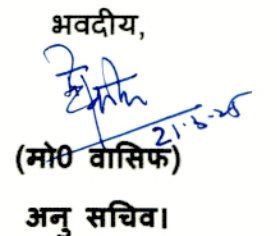 भवदीय,
21.3.25
(मो0 वासिफ)
अनु सचिव।